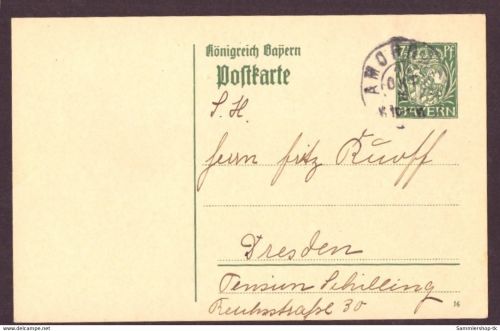 Königreich Bayern
Postkarte
7½ Pf
AMORB
BAYERN
S. H.
Herrn Fritz Ruoff
Dresden
Pension Schilling
Reichsstraße 30
16
Sammlershop-tk